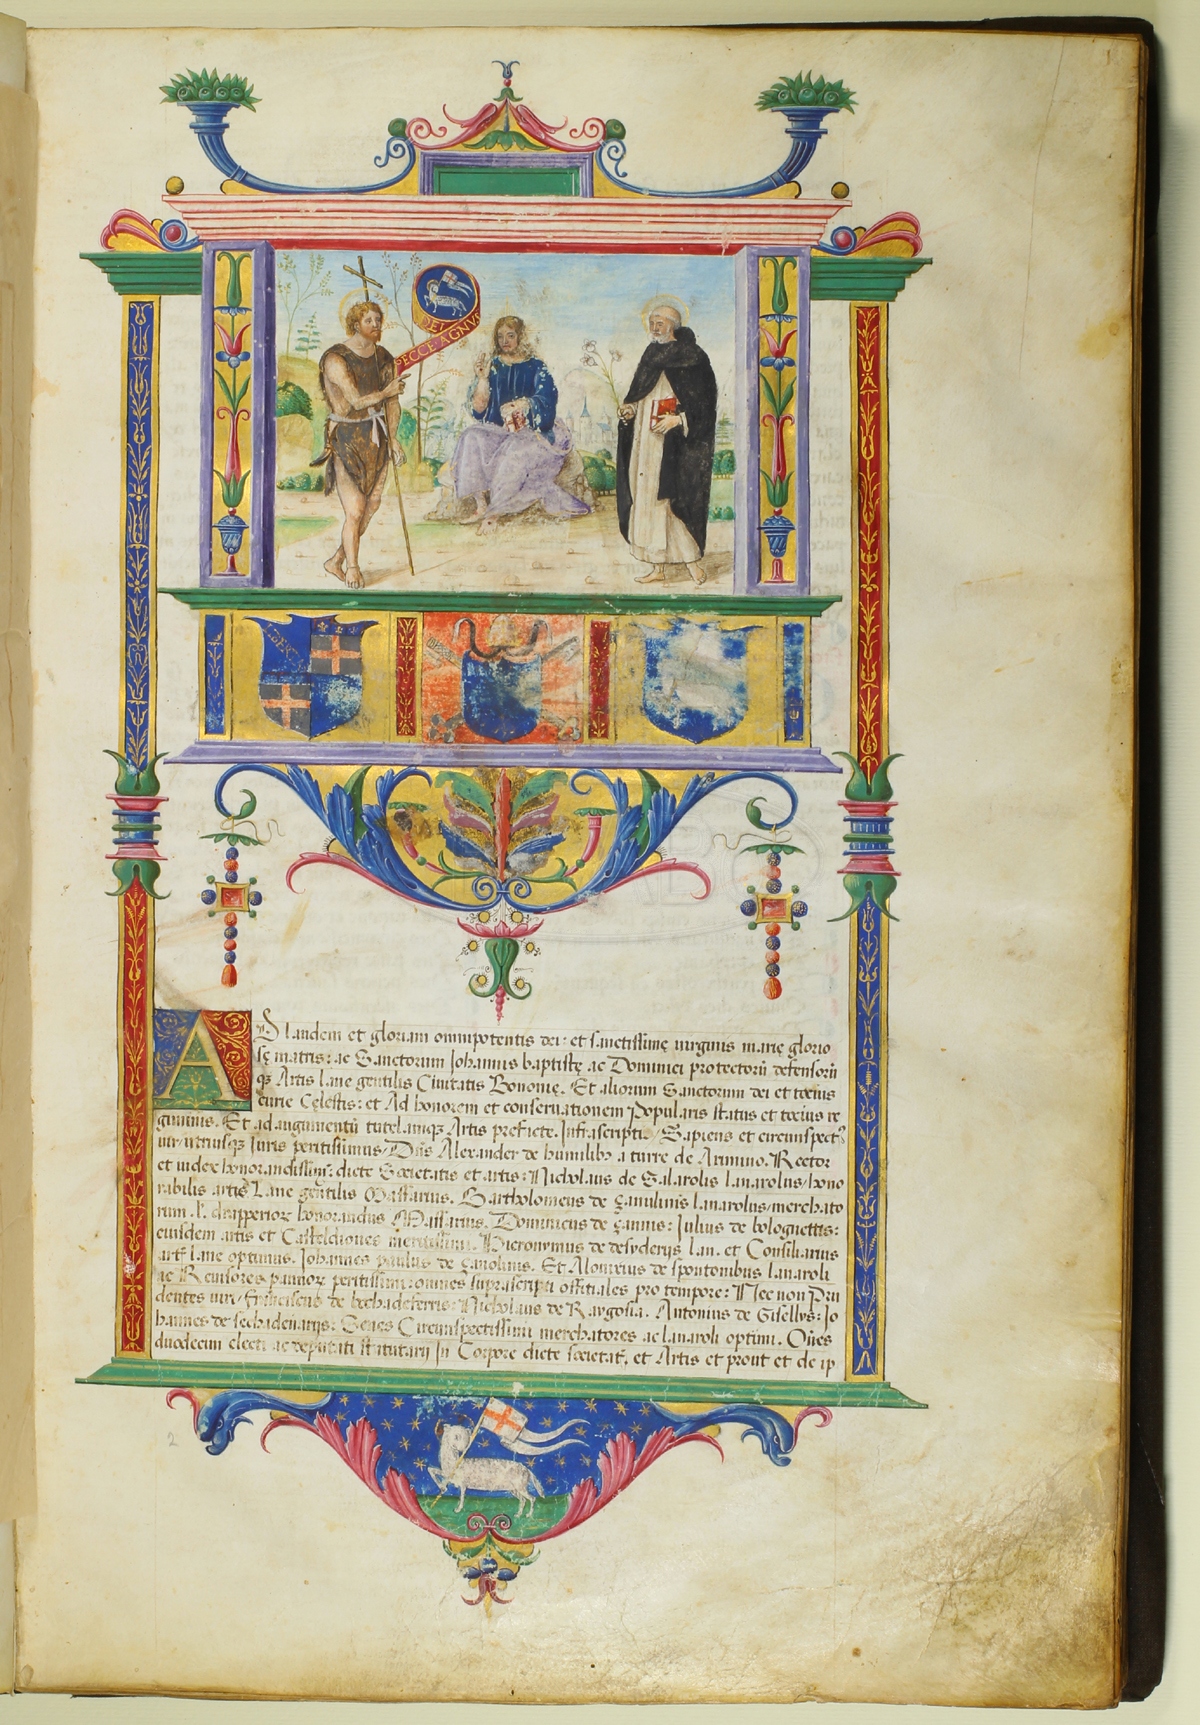 DEI
ECCE·AGNVS
LIBER
AD laudem et gloriam omnipotentis dei: et sanctissimę uirginis marię glorio
sę matris: ac Sanctorum Johannis baptistę ac Dominici protectorū defensorū
qȝ Artis Lane gentilis Ciuitatis Bononię. Et aliorum Sanctorum dei et totius
curie Cęlestis: et Ad honorem et conseruationem popularis status et totius re
giminis. Et ad augumentū tutelamqȝ Artis prefate. Infrascripti / Sapiens et circumspectꝰ
uir utriusqȝ Iuris peritissimus / Dn̄s Alexander de humilibȝ a turre de Arimino. Rector
et iudex honorandissimꝰ: dicte Societatis et artis: Nicholaus de Salarolis Lanarolus / hono
rabilis artis Lane gentilis Massarius. Bartholomeus de lanarolus / merchato
rum .l. drapperioꝝ honorandus Massarius. Dominicus de Iulius de bolognettis:
eiusdem artis et Hieronymus de desyderijs Lan. et Consiliarius
artꝭ Lane optimus. Johannes paulus de Et Alouisius de spontonibus Lanaroli
ac Reuisores pannoꝝ peritissimi: omnes suprascripti offitiales pro tempore: Nec non Pru
dentes uiri / Franciscus de bechadeferris: Nicholaus de Raygosia. Antonius de Gisellys: Jo
hannes de sechadenarijs: Ciues Circumspectissimi merchatores ac lanaroli optimi. Oēs
duodecim electi ac deputati statutarij In Corpore dicte societatꝭ, et Artis et prout et de ip
2